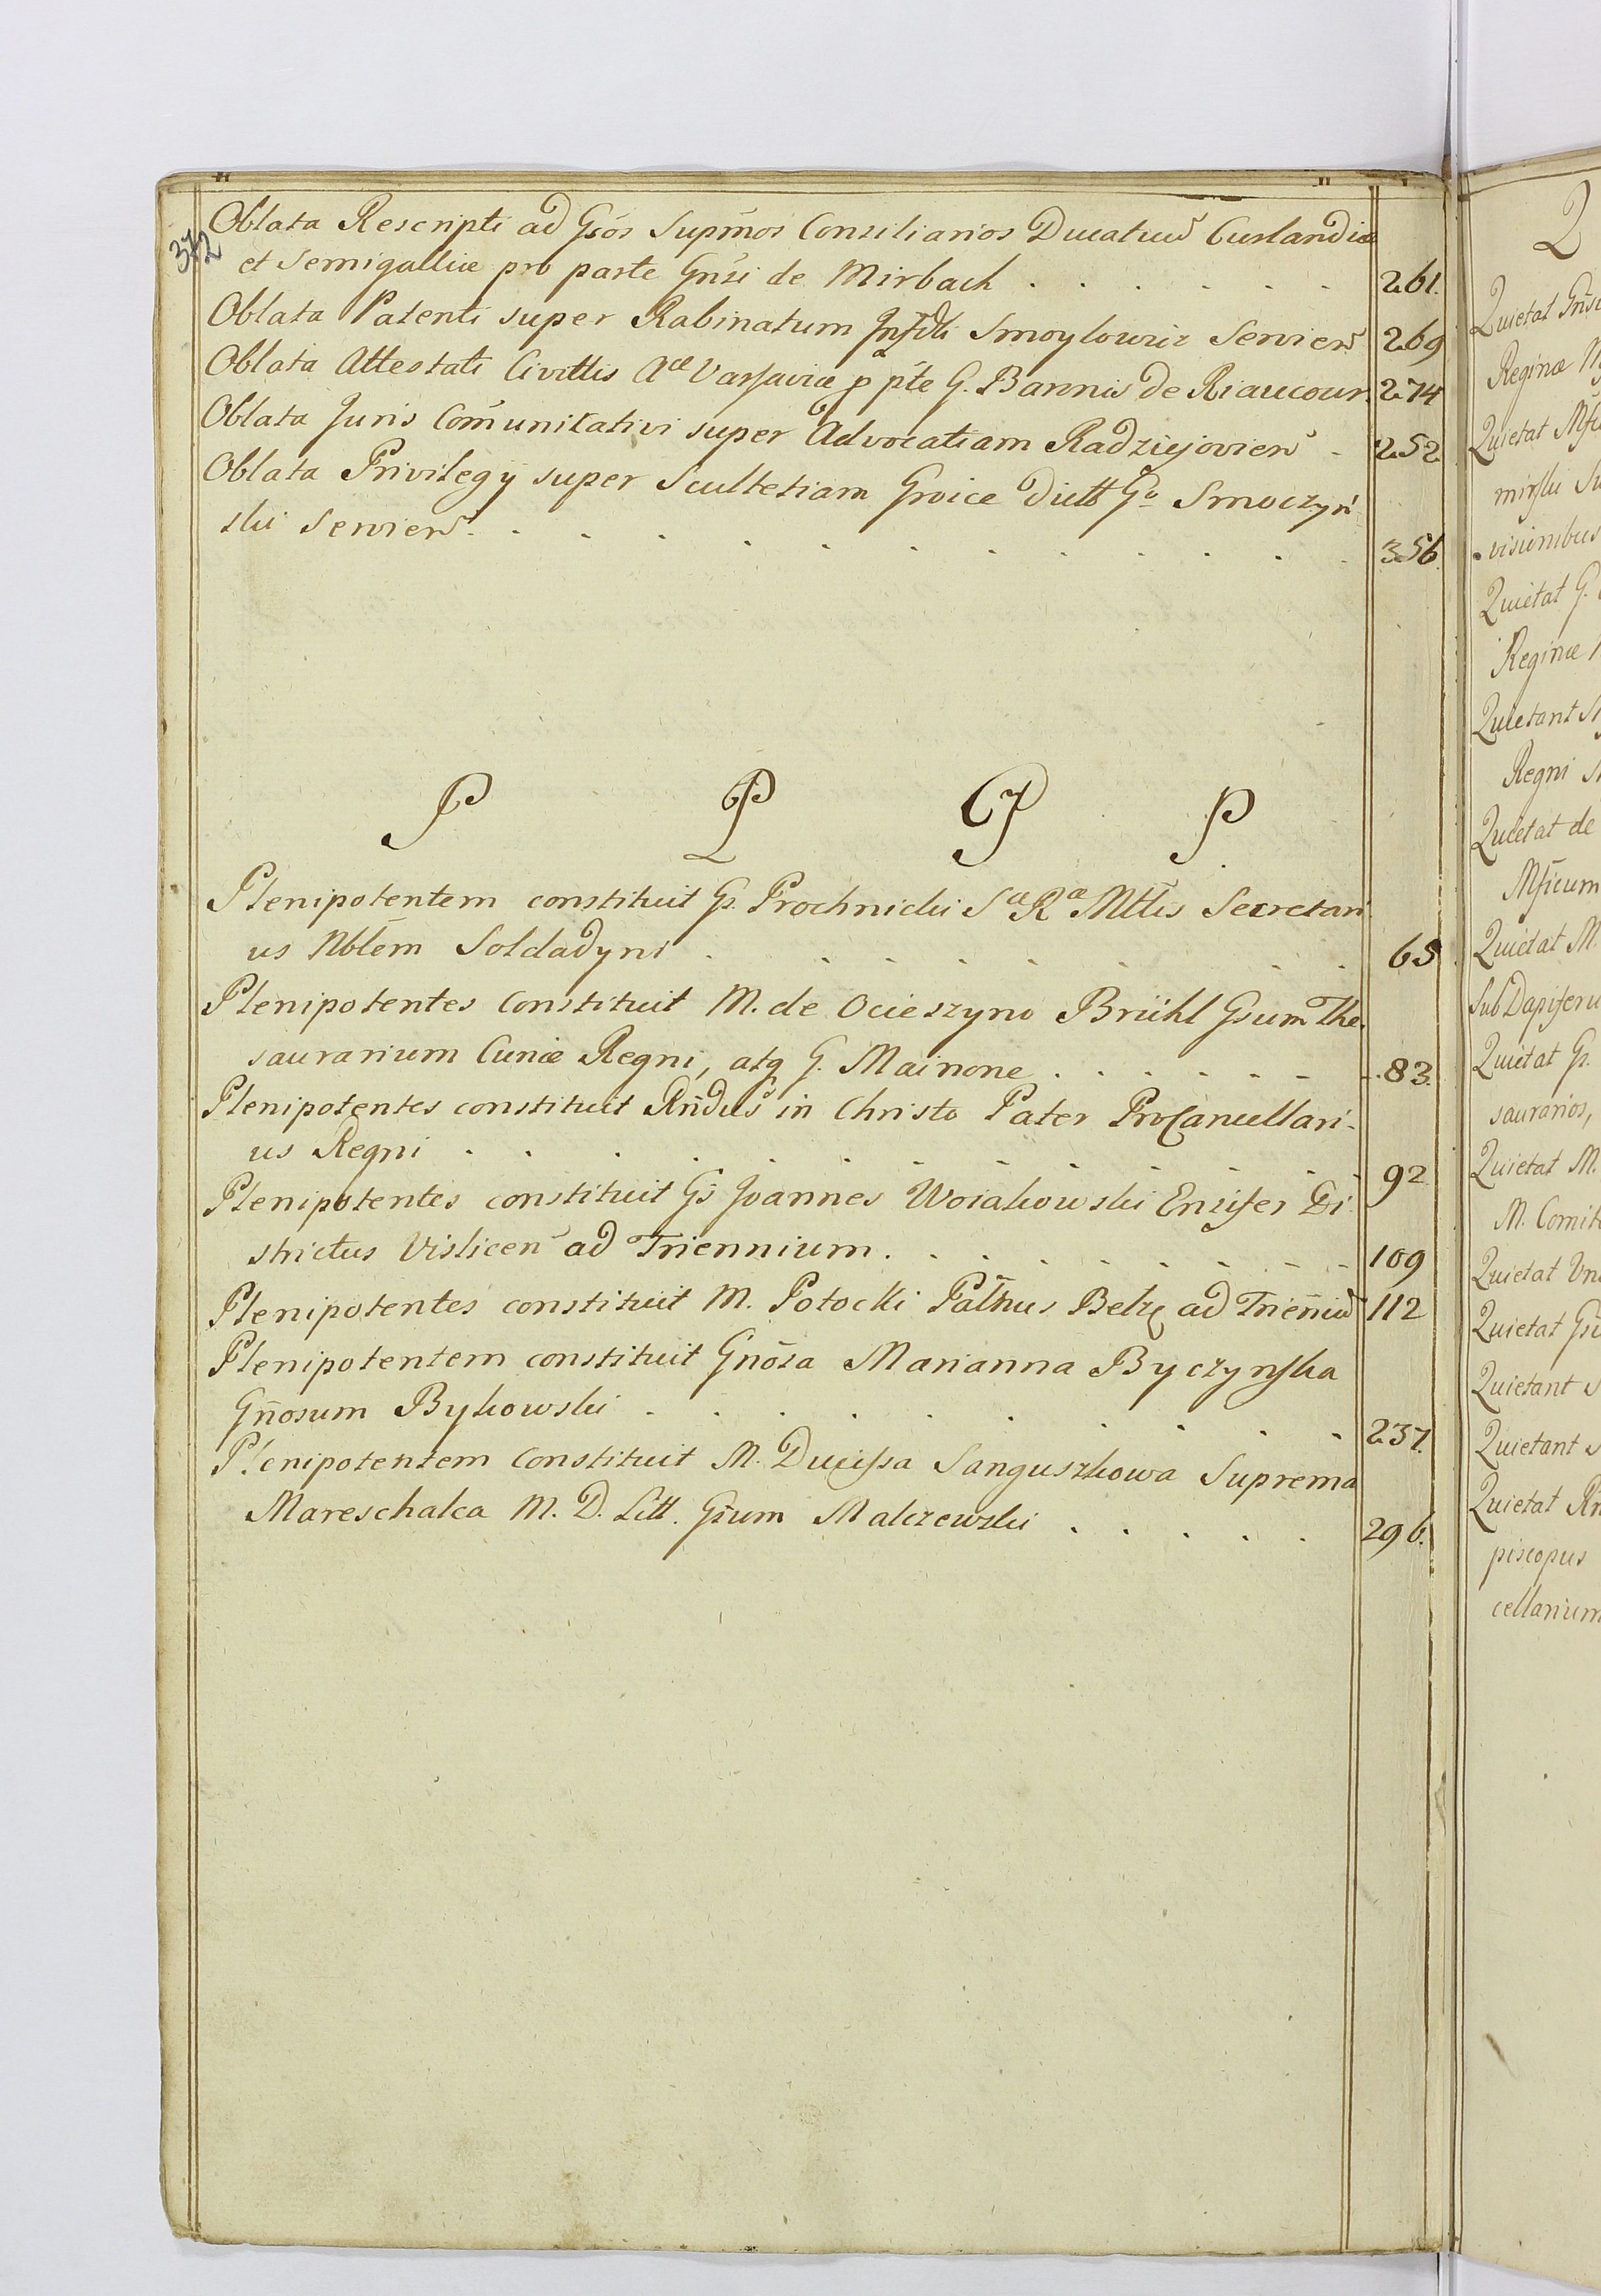 372
Oblata Rescripti ad Gsōs Supmōs Consiliarios Ducatuũ Curlandiæ
et Semigalliæ pro parte Gnsi de Mirbach . . . . . . 261.
Oblata Patenti super Rabinatum Smoylowicz Servien̄ 269
Oblata Attestati Civittis Aæ Varsaviæ p pte G. Baronis de Riaucour. 274
Oblata Juris Com̄unicativi super Advocatiam Radziejovien̄ . 252
Oblata Privilegÿ super Scultetiam Groice dictt Go Smoczyń
ski Servien̄ . . . . . . . . . . . 356.
P P P P
Plenipotentem constituit Gs. Prochnicki Sæ Ræ Mttis Secretari
us Nblēm Soldadyni . . . . . . . . 65
Plenipotentes Constituit M. de Ocieszyno Brühl Gsum The.
saurarium Curiæ Regni, atq G. Mainone . . . . . . . 83.
Plenipotentes constituit Rn̄dus in Christo Pater ProCancellari.
us Regni . . . . . . . . . . . . 92
Plenipotentes constituit Gs̄ Joannes Woiakowski Ensifer Di
strictus Vislicen̄ ad Triennium . . . . . . . . . 109
Plenipotentes constituit M. Potocki Palt̄nus Belzę ad Trien̄iũ 112
Plenipotentem constituit Gnōsa Marianna Byczynska
Gn̄osum Bykowski . . . . . . . . . 237.
Plenipotentem Constituit M. Ducissa Sanguszkowa Suprema
Mareschalca M. D. Litt. Gs̄um Malczewski . . . . . 296.
Q
Quietat Gns̄
Reginæ
Quietat Mfi
mirski Su
visionibus
Quietat G.
Reginæ
Quietant
Regni
Quietat de
Mficum
Quietat M.
SubDapiferu
Quietat Gs.
saurarios,
Quietat M.
M. Comit
Quietat
Quietat Gs̄
Quietant
Quietant
Quietat Rn
piscopus
cellarium